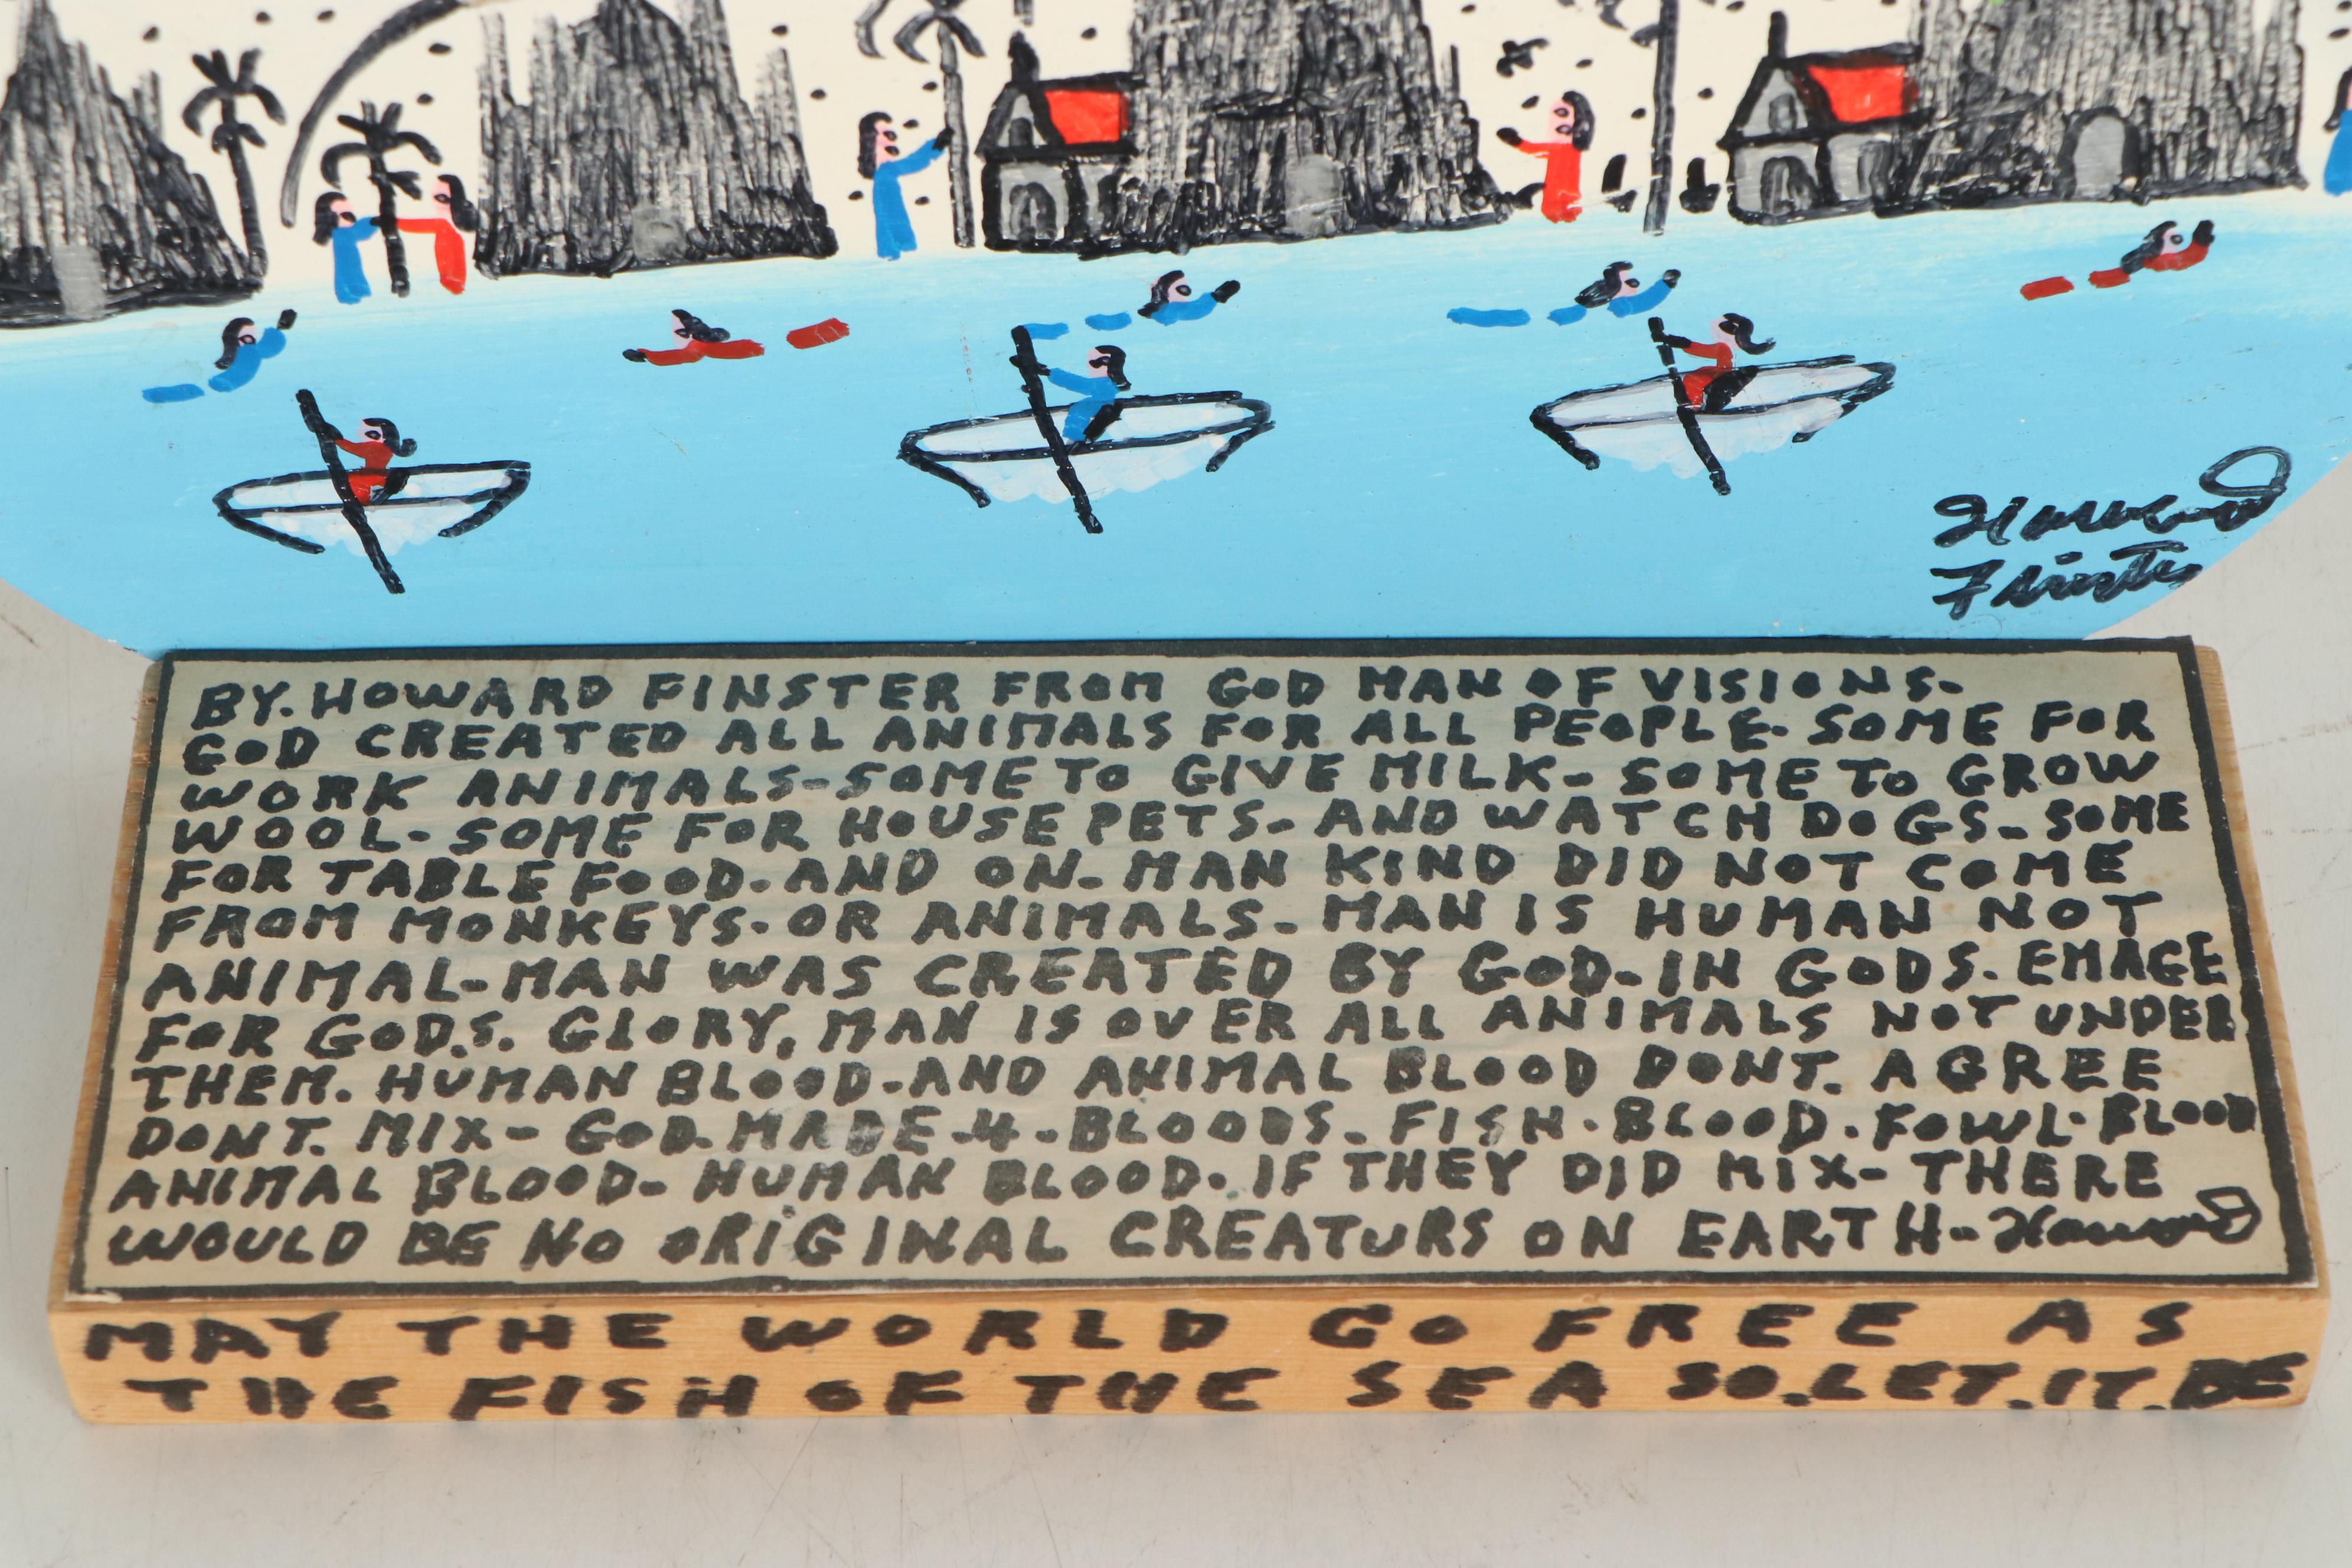 Howard
Finster
BY. HOWARD FINSTER FROM GOD MAN OF VISIONS-
GOD CREATED ALL ANIMALS FOR ALL PEOPLE- SOME FOR
WORK ANIMALS-SOME TO GIVE MILK- SOME TO GROW
WOOL- SOME FOR HOUSE PETS- AND WATCH DOGS- SOME
FOR TABLE FOOD-AND ON- MAN KIND DID NOT COME
FROM MONKEYS- OR ANIMALS- MAN IS HUMAN NOT
ANIMAL-MAN WAS CREATED BY GOD-IN GODS. EMAGE
FOR GOD.S. GLORY, MAN IS OVER ALL ANIMALS NOT UNDER
THEM. HUMAN BLOOD-AND ANIMAL BLOOD DONT. AGREE
DONT. MIX- GOD. MADE-4-BLOODS- FISH-BLOOD-FOWL-BLOOD
ANIMAL BLOOD- HUMAN BLOOD. IF THEY DID MIX- THERE
WOULD BE NO ORIGINAL CREATURS ON EARTH-Howard
MAY THE WORLD GO FREE AS
THE FISH OF THE SEA SO.LET.IT.BE